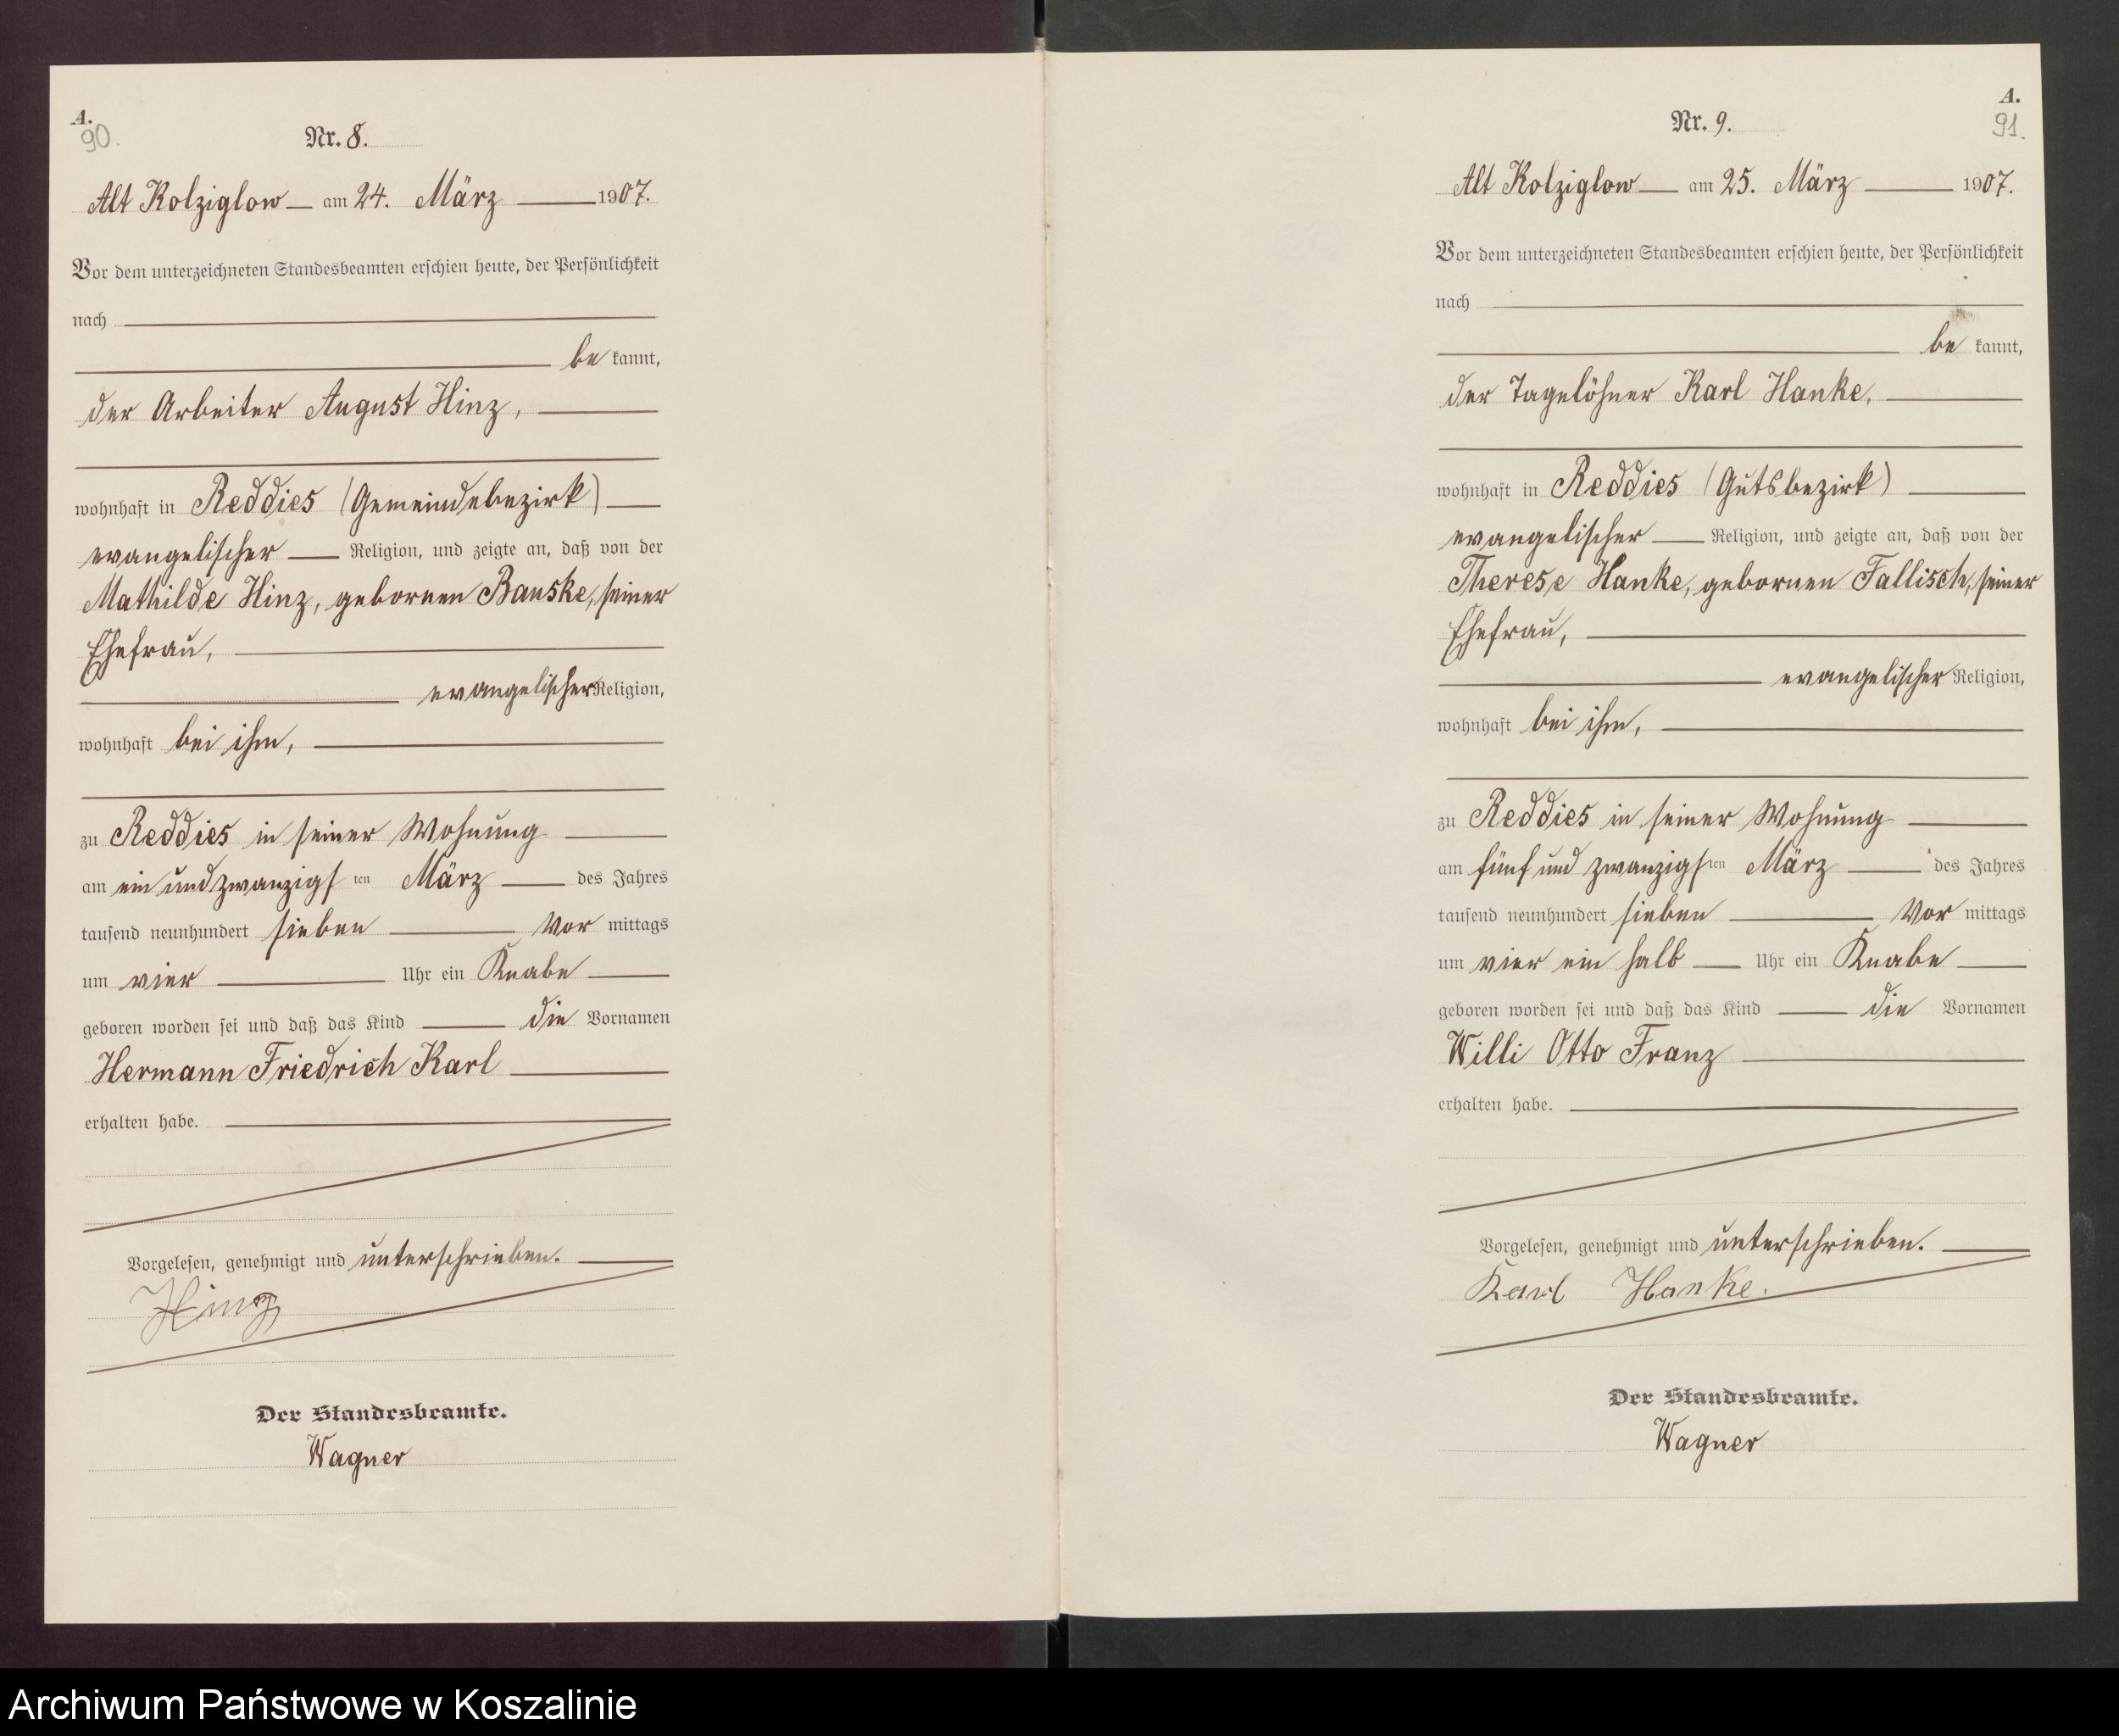 A.
90.
Nr. 8.
Alt Kolziglow am 24. März 1907.
Vor dem unterzeichneten Standesbeamten erschien heute, der Persönlichkeit
nach
be kannt,
der Arbeiter August Hinz,
wohnhaft in Reddies (Gemeindebezirk)
evangelischer Religion, und zeigte an, daß von der
Mathilde Hinz, gebornen Banske, seiner
Ehefrau,
evangelischer Religion,
wohnhaft bei ihm,
zu Reddies in seiner Wohnung
am ein und zwanzigsten März des Jahres
tausend neunhundert sieben Vor mittags
um vier Uhr ein Knabe
geboren worden sei und daß das Kind die Vornamen
Hermann Friedrich Karl
erhalten habe.
Vorgelesen, genehmigt und unterschrieben.
Hinz
Der Standesbeamte.
Wagner
A.
91.
Nr. 9.
Alt Kolziglow am 25. März 1907.
Vor dem unterzeichneten Standesbeamten erschien heute, der Persönlichkeit
nach
be kannt,
der Tagelöhner Karl Hanke,
wohnhaft in Reddies (Gutsbezirk)
evangelischer Religion, und zeigte an, daß von der
Therese Hanke, gebornen Fallisch, seiner
Ehefrau,
evangelischer Religion,
wohnhaft bei ihm,
zu Reddies in seiner Wohnung
am fünf und zwanzigsten März des Jahres
tausend neunhundert sieben Vor mittags
um vier ein halb Uhr ein Knabe
geboren worden sei und daß das Kind die Vornamen
Willi Otto Franz
erhalten habe.
Vorgelesen, genehmigt und unterschrieben.
Karl Hanke.
Der Standesbeamte.
Wagner
Archiwum Państwowe w Koszalinie